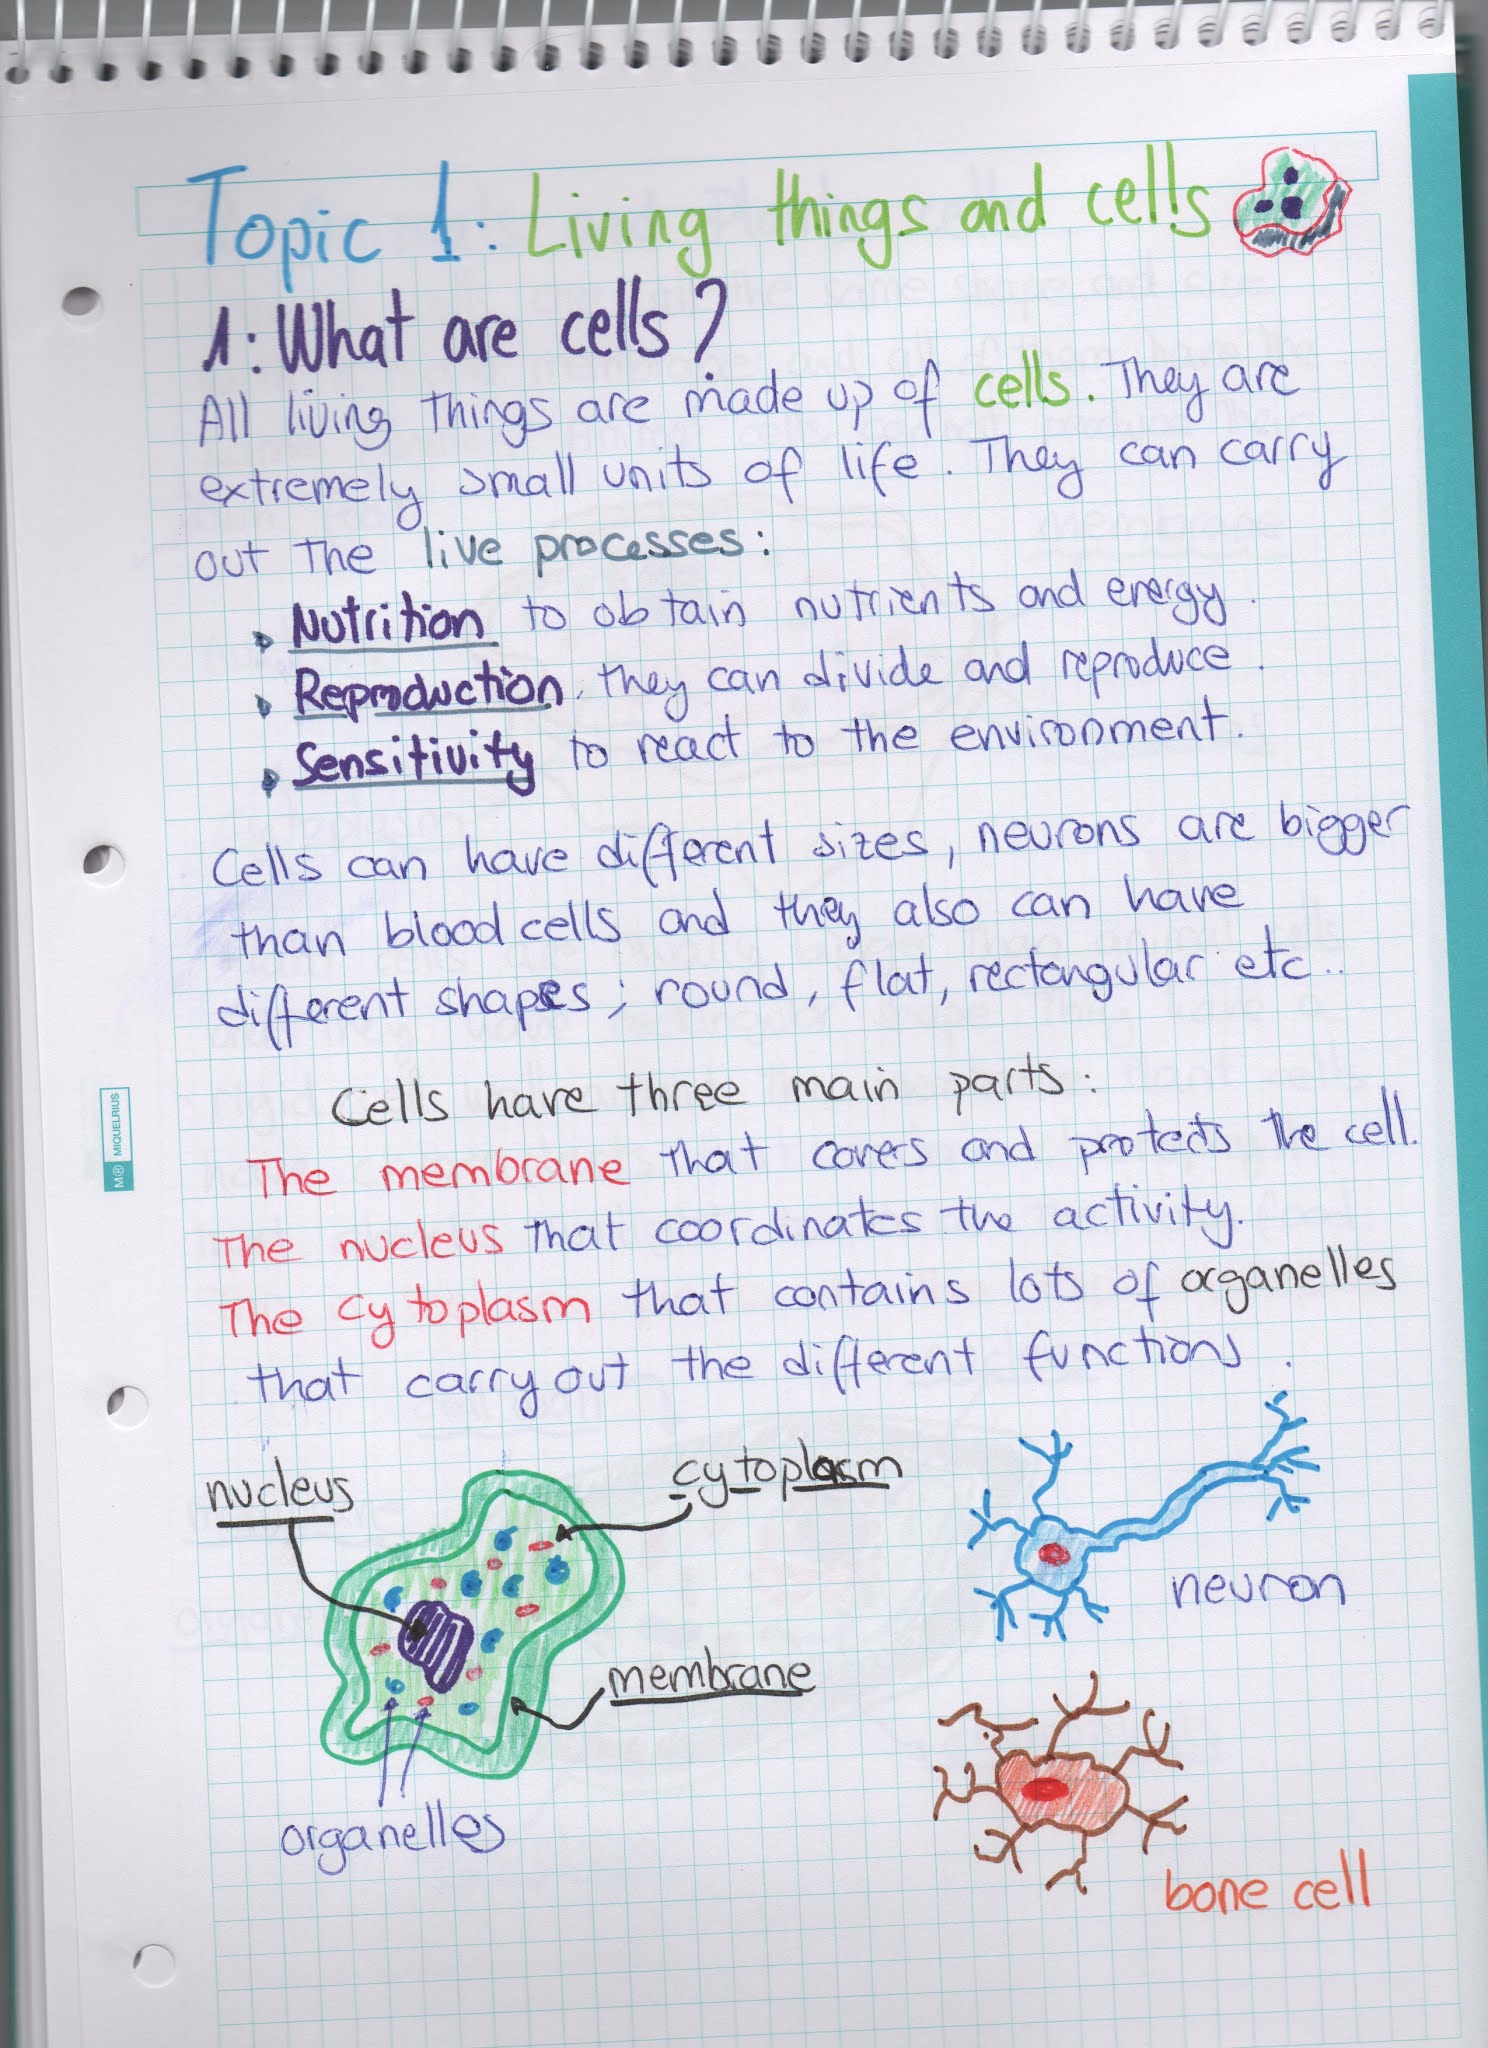 Topic 1: Living things and cells
1: What are cells?
All living things are made up of cells. They are
extremely small units of life. They can carry
out the live processes:
Nutrition to obtain nutrients and energy.
Reproduction, they can divide and reproduce.
Sensitivity to react to the environment.
Cells can have different sizes, neurons are bigger
than blood cells and they also can have
different shapes; round, flat, rectangular etc..
Cells have three main parts:
M® MIQUELRIUS
The membrane that cores and protects the cell.
The nucleus that coordinates the activity.
The cytoplasm that contains lots of organelles
that carry out the different functions.
nucleus
cytoplasm
neuron
membrane
organelles
bone cell